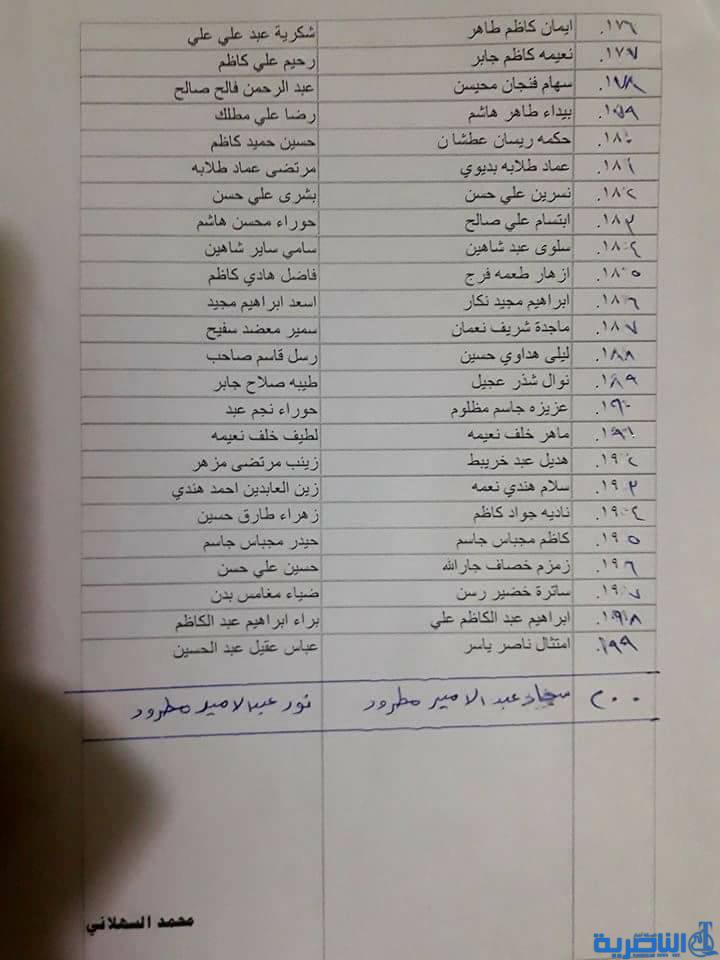 ١٧٦. ايمان كاظم طاهر شكرية عبد علي علي
١٧٧. نعيمه كاظم جابر رحيم علي كاظم
١٧٨. سهام فنجان محيسن عبد الرحمن فالح صالح
١٧٩. بيداء طاهر هاشم رضا علي مطلك
١٨٠. حكمه ريسان عطشان حسين حميد كاظم
١٨١. عماد طلابه بديوي مرتضى عماد طلابه
١٨٢. نسرين علي حسن بشرى علي حسن
١٨٣. ابتسام علي صالح حوراء محسن هاشم
١٨٤. سلوى عبد شاهين سامي ساير شاهين
١٨٥. ازهار طعمه فرج فاضل هادي كاظم
١٨٦. ابراهيم مجيد نكار اسعد ابراهيم مجيد
١٨٧. ماجدة شريف نعمان سمير معضد سفيح
١٨٨. ليلى هداوي حسين رسل قاسم صاحب
١٨٩. نوال شذر عجيل طيبه صلاح جابر
١٩٠. عزيزه جاسم مظلوم حوراء نجم عبد
١٩١. ماهر خلف نعيمه لطيف خلف نعيمه
١٩٢. هديل عبد خريبط زينب مرتضى مزهر
١٩٣. سلام هندي نعمه زين العابدين احمد هندي
١٩٤. ناديه جواد كاظم زهراء طارق حسين
١٩٥. كاظم مجباس جاسم حيدر مجباس جاسم
١٩٦. زمزم خصاف جارالله حسين علي حسن
١٩٧. ساترة خضير رسن ضياء مغامس بدن
١٩٨. ابراهيم عبد الكاظم علي براء ابراهيم عبد الكاظم
١٩٩. امتثال ناصر ياسر عباس عقيل عبد الحسين
٢٠٠ سجاد عبد الامير مطرود نور عبد الامير مطرود
محمد السهلاني
الناصرية